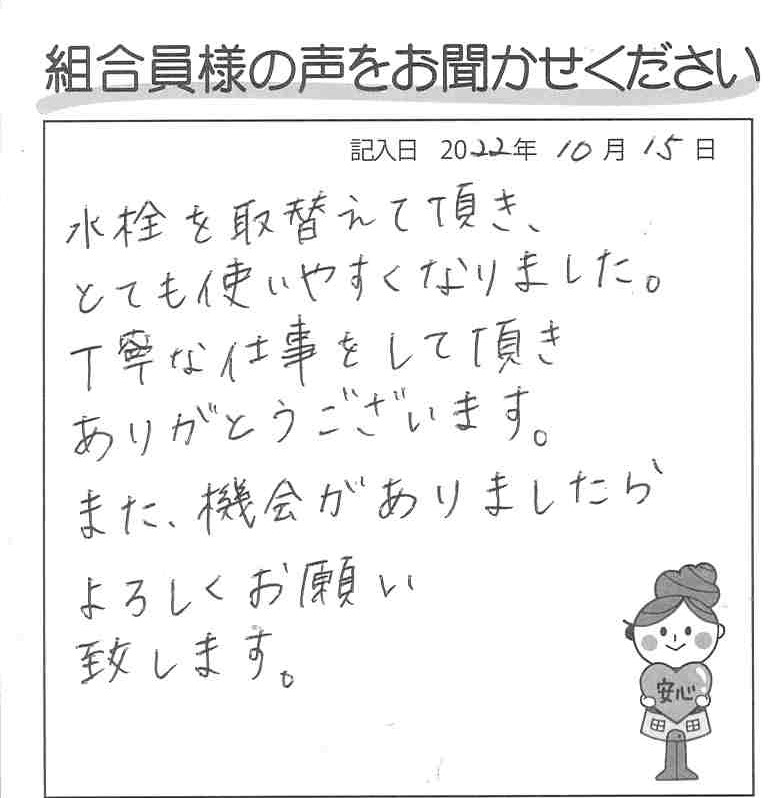 組合員様の声をお聞かせください
記入日 2022年 10月 15日
水栓を取替えて頂き、
とても使いやすくなりました。
丁寧な仕事をして頂き
ありがとうございます。
また、機会がありましたら
よろしくお願い
致します。
安心